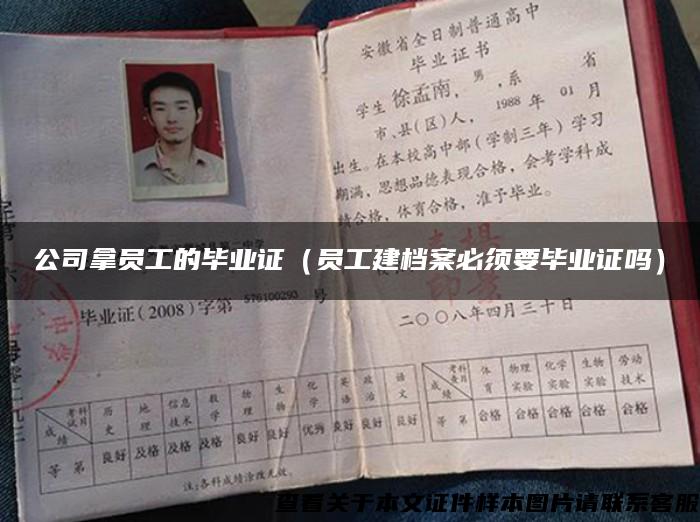 安徽省全日制普通高中
毕业证书
学生徐孟南，男，系 省
市、县(区)人，1988年01月
出生。在本校高中部（学制三年）学习
期满，思想品德表现合格，会考学科成
绩合格，体育合格，准予毕业。
公司拿员工的毕业证（员工建档案必须要毕业证吗）
毕业证(2008)字第576100293号
二〇〇八年四月三十日
成绩 考试科目 历史 地理 信息技术 数学 物理 生物 化学 英语 政治 语文
等第 良好 及格 及格 及格 良好 良好 优秀 良好 良好 良好
注:各科成绩涂改无效。
成绩 考查科目 体育 物理实验 化学实验 生物实验 劳动技术
等第 合格 合格 合格 合格 合格
查看关于本文证件样本图片请联系客服